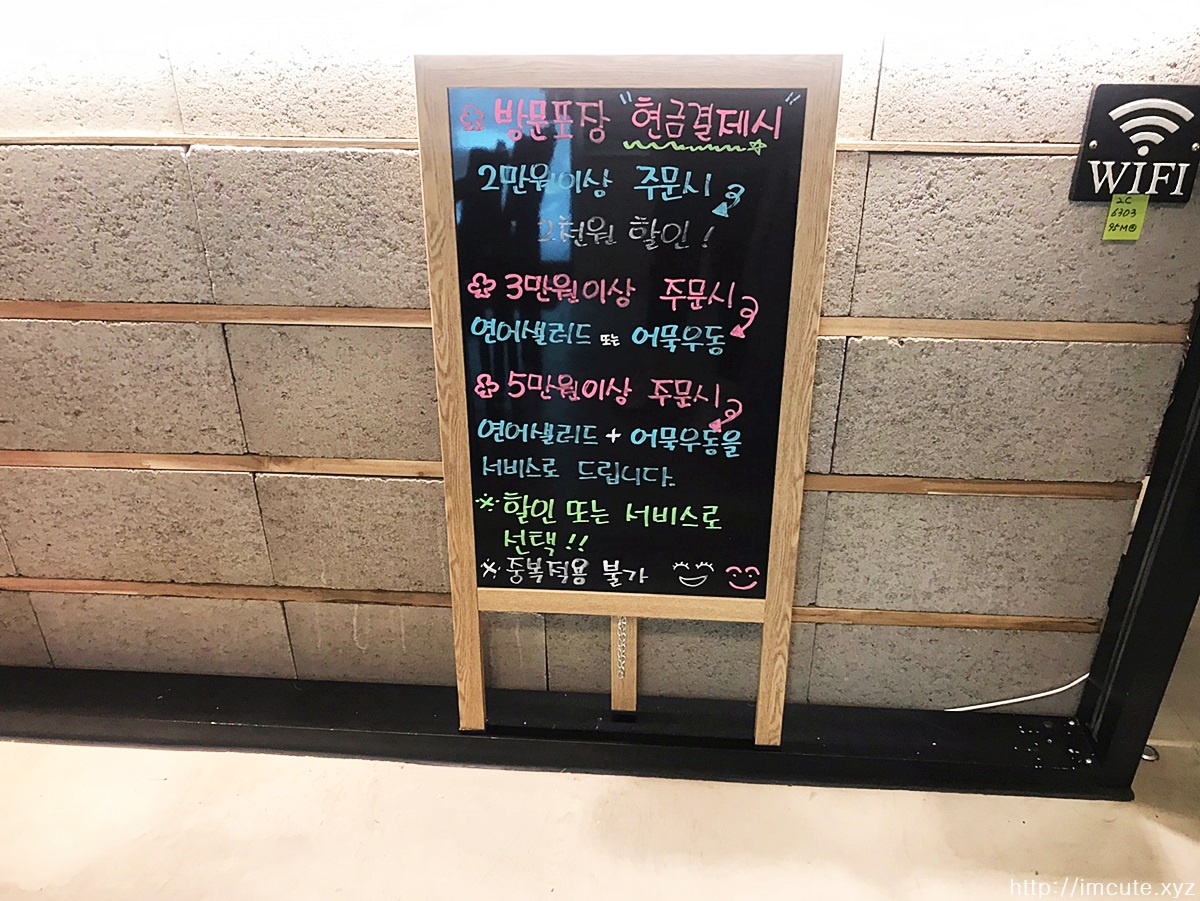 방문포장 "현금결제시"
2만원이상 주문시
2천원 할인!
3만원이상 주문시
연어샐러드 또는 어묵우동
5만원이상 주문시
연어샐러드 + 어묵우동을
서비스로 드립니다.
※ 할인 또는 서비스로
선택!!
※ 중복적용 불가
WIFI
2C
6703
http://imcute.xyz